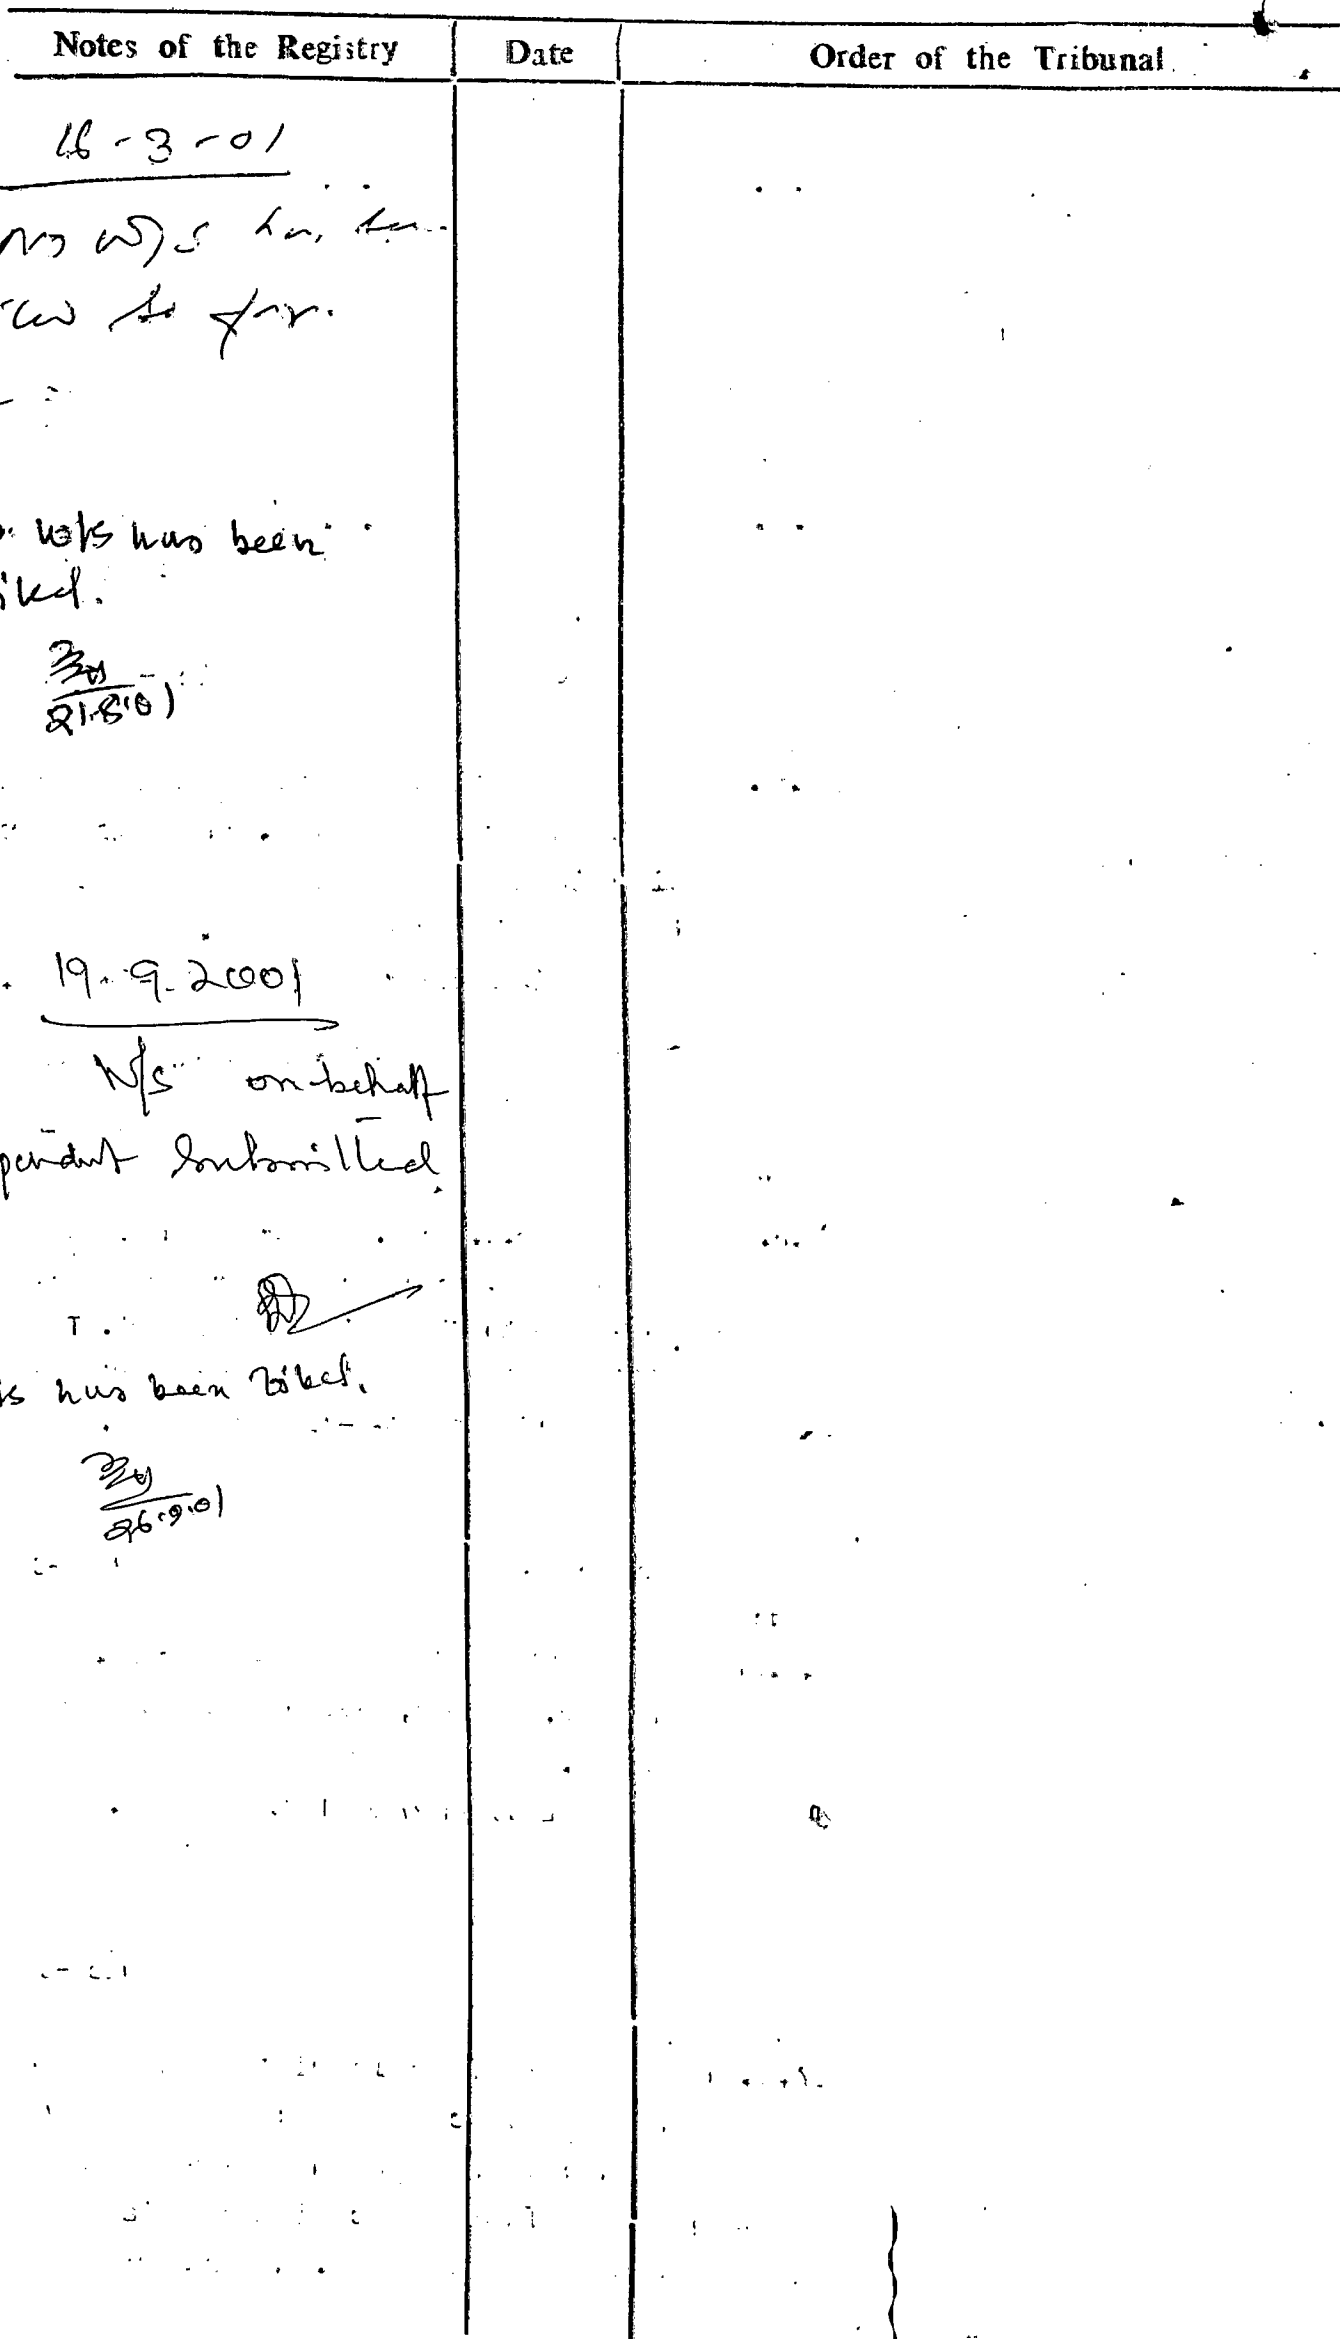 Notes of the Registry | Date | Order of the Tribunal
16-3-01
No W/S has been
so far.
W/S has been
21.8.01
19.9.2001
W/S on behalf
pondent Submitted
s has been
26.9.01